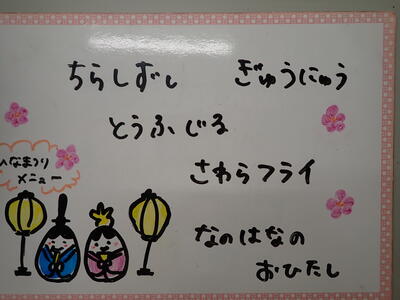 ちらしずし
ぎゅうにゅう
とうふじる
さわらフライ
なのはなの
おひたし
ひなまつり
メニュー